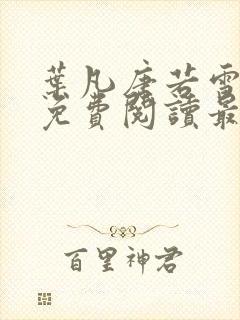 葉凡唐若雪
免費閱讀最
百里神君